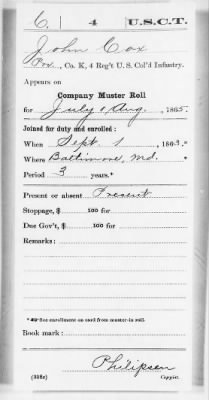 C. | 4 | U.S.C.T.
John Cox
Pvt., Co. K, 4 Reg't U. S. Col'd Infantry.
Appears on
Company Muster Roll
for July & Aug., 1865.
Joined for duty and enrolled:
When Sept. 1, 1863.*
Where Baltimore, Md. *
Period 3 years.*
Present or absent Present
Stoppage, $ 100 for
Due Gov't, $ 100 for
Remarks:
* See enrollment on card from muster-in roll.
Book mark:
Philipsen
(358c) Copyist.